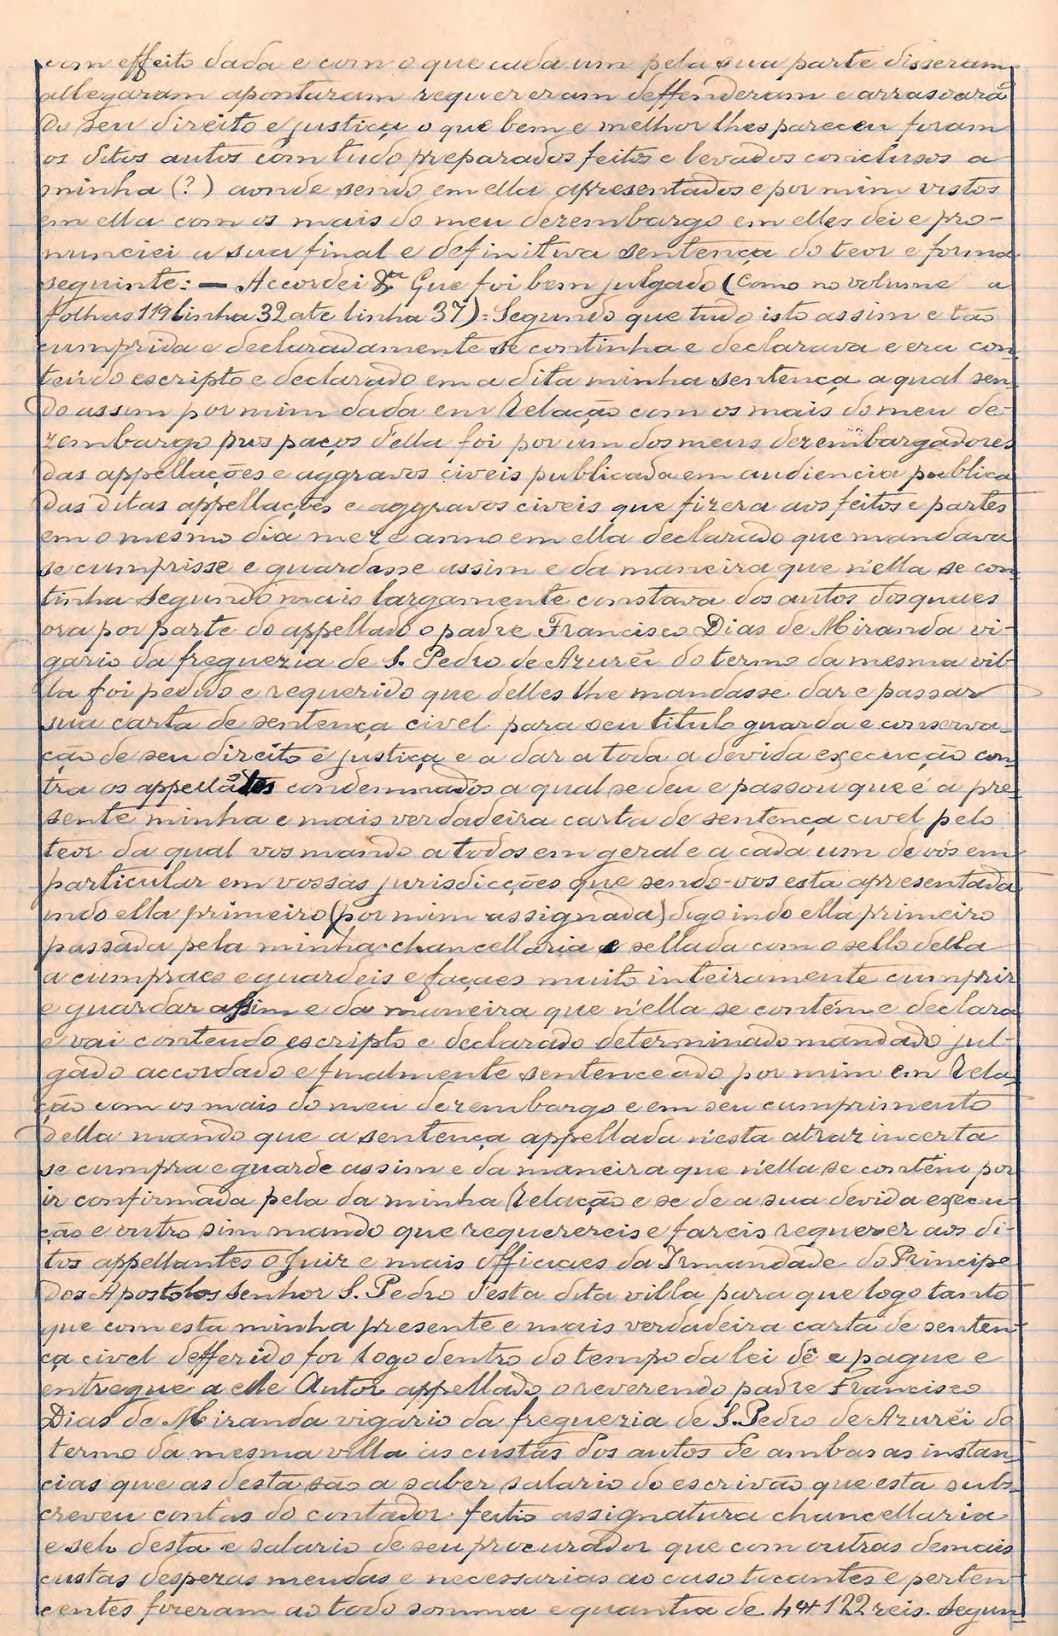 com effeito dada e com o que cada um pela sua parte disseram
allegaram apontaram requereram deffenderam e arrasoarã
do seu direito e justiça o que bem e melhor lhes pareceu foram
os ditos autos com tudo preparados feitos e levados conclusos a
minha (?) aonde sendo em ella apresentados e por mim vistos
em ella com os mais do meu dezembargo em elles dei e pro-
nunciei a sua final e definitiva sentença do teor e forma
seguinte: — Accordei &ª Que foi bem julgado (como no volume a
folhas 119 linha 32 ate linha 37) = Segundo que tudo isto assim e tão
cumprida e declaradamente se continha e declarava e era con-
teúdo escripto e declarado em a dita minha sentença a qual sen-
do assim por mim dada em Relação com os mais do meu de-
zembargo pros paços d'ella foi por um dos meus dezembargadores
das appellações e aggravos civeis publicada em audiencia publica
das ditas appellações e aggravos civeis que fizera aos feitos e partes
em o mesmo dia mez e anno em ella declarado que mandava
se cumprisse e guardasse assim e da maneira que n'ella se con-
tinha Segundo mais largamente constava dos autos dos quaes
ora por parte do appellado o padre Francisco Dias de Miranda vi-
gario da freguezia de S. Pedro de Azurêi do termo da mesma vil-
la foi pedido e requerido que delles lhe mandasse dar e passar
sua carta de sentença civel para seu titulo guarda e conserva-
ção de seu direito e justiça e a dar a toda a devida execução con-
tra os appellãtes condemnados a qual se deu e passou que é a pre-
sente minha e mais verdadeira carta de sentença civel pelo
teor da qual vos mando a todos em geral e a cada um de vós em
particular em vossas jurisdicções que sendo-vos esta apresentada
indo ella primeiro (por mim assignada) digo indo ella primeiro
passada pela minha chancellaria e sellada com o sello della
a cumpraes e guardeis e façaes muito inteiramente cumprir
e guardar assim e da maneira que n'ella se contém e declara
e vai contendo escripto e declarado determinado mandado jul-
gado accordado e finalmente sentenceado por mim em Rela-
ção com os mais do meu dezembargo e em seu cumprimento
della mando que a sentença appellada n'esta atraz incerta
se cumpra e guarde assim e da maneira que n'ella se contêm por
ir confirmada pela da minha Relação e se de a sua devida execu-
ção e outro sim mando que requerereis e fareis requerer aos di-
tos appellantes o Juiz e mais officiaes da Irmandade do Principe
dos Apostolos Senhor S. Pedro d'esta dita villa para que logo tanto
que com esta minha presente e mais verdadeira carta de senten-
ça civel defferido for logo dentro do tempo da lei dê e pague e
entregue a elle Autor appellado o reverendo padre Francisco
Dias de Miranda vigario da freguezia de S. Pedro de Azurêi do
termo da mesma villa as custas dos autos de ambas as instan-
cias que as desta são a saber salario do escrivão que esta subs-
creveu contas do contador feitio assignatura chancellaria
e selo desta e salario de seu procurador que com outras demais
custas desperas meudas e necessarias ao caso tocantes e perten-
centes fizeram ao todo somma e quantia de 4$122 reis. Segun-